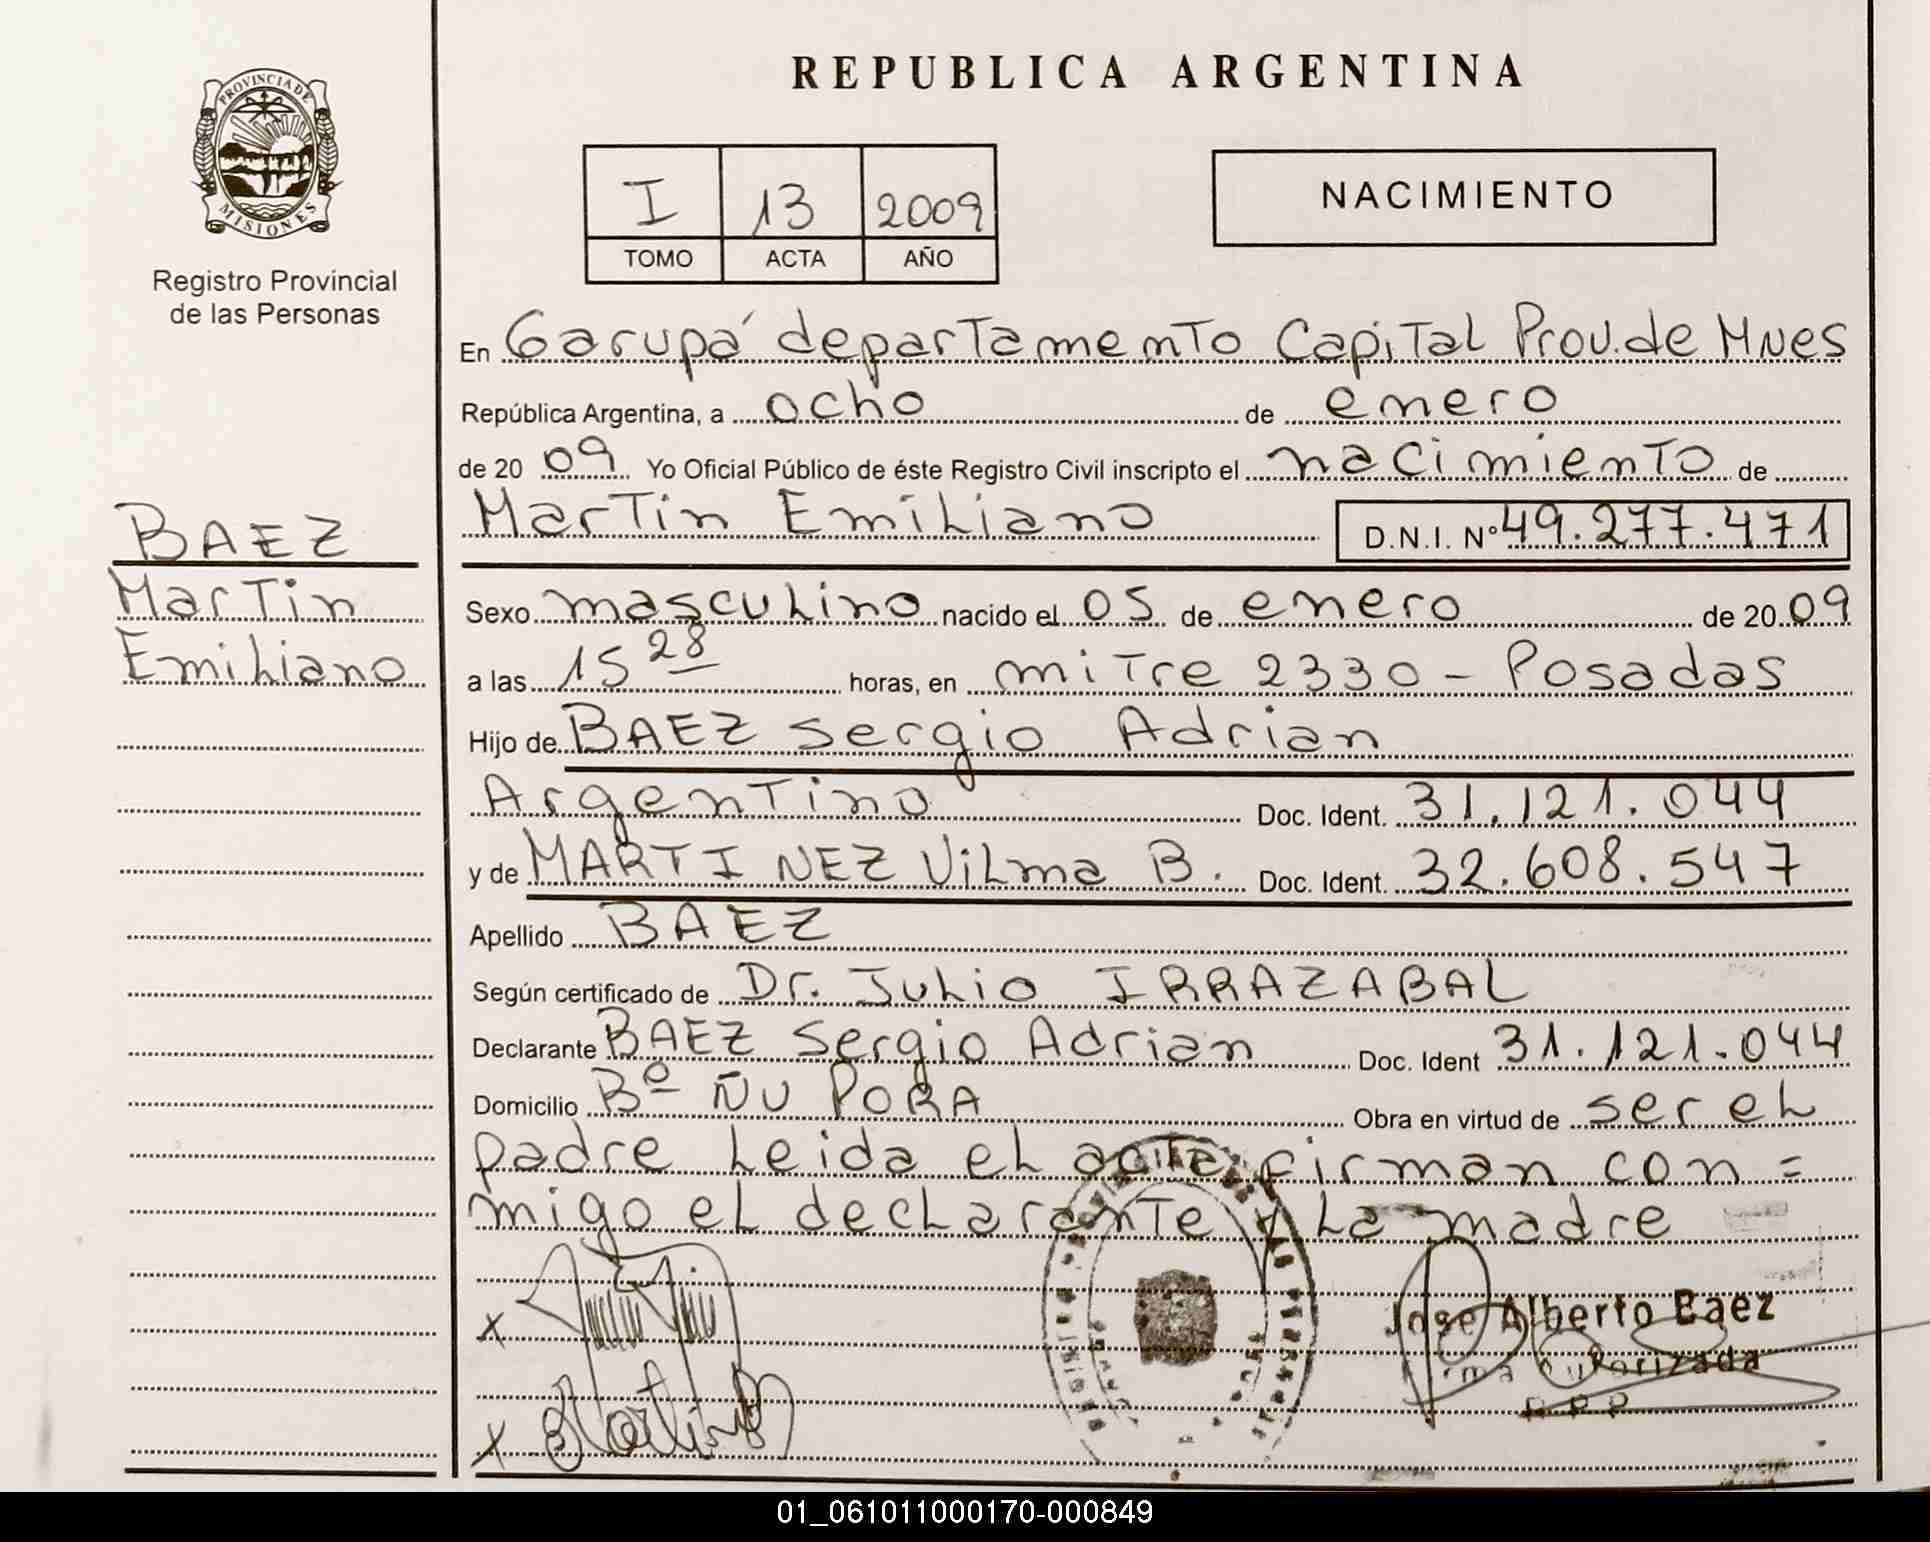 PROVINCIA DE
MISIONES
Registro Provincial
de las Personas
BAEZ
Martin
Emiliano
REPUBLICA ARGENTINA
I 13 2009
TOMO ACTA AÑO
NACIMIENTO
En Garupá departamento Capital Prov. de Mnes
República Argentina, a ocho de enero
de 20 09 Yo Oficial Público de éste Registro Civil inscripto el nacimiento de
Martin Emiliano D.N.I. Nº 49.277.471
Sexo masculino nacido el 05 de enero de 20 09
a las 15 28 horas, en mitre 2330 - Posadas
Hijo de BAEZ Sergio Adrian
Argentino Doc. Ident. 31.121.044
y de MARTINEZ Vilma B. Doc. Ident. 32.608.547
Apellido BAEZ
Según certificado de Dr. Julio IRRAZABAL
Declarante BAEZ Sergio Adrian Doc. Ident 31.121.044
Domicilio Bº ÑU PORA Obra en virtud de ser el
padre Leida el acta firman con =
migo el declarante y la madre
x
x
Jose Alberto Baez
Firma Autorizada
R P P
01_061011000170-000849